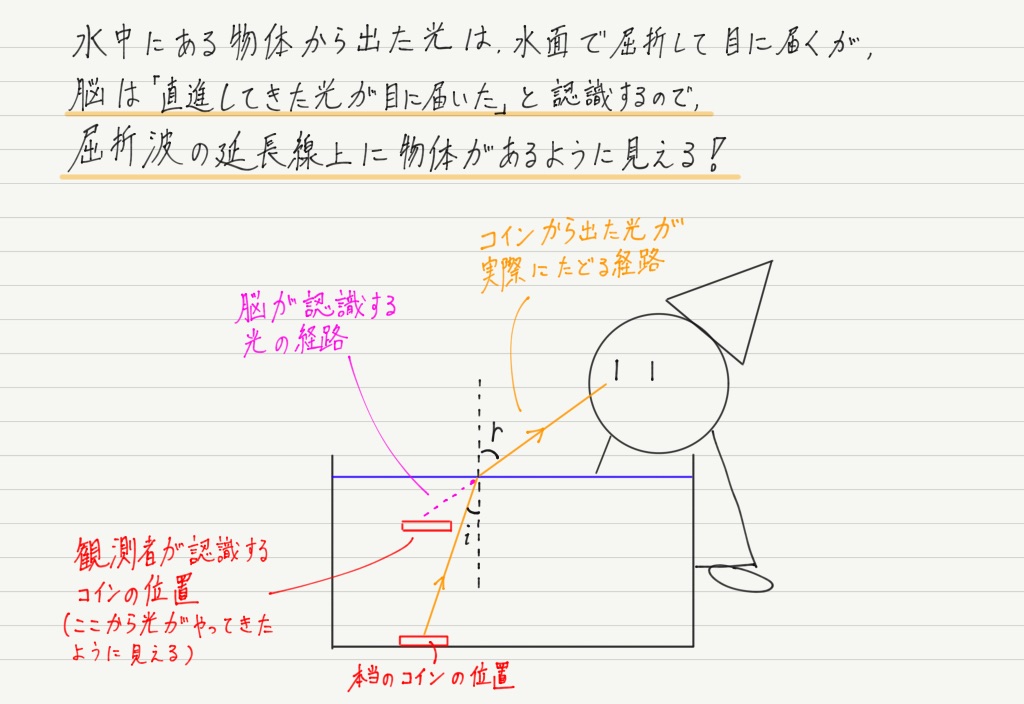 水中にある物体から出た光は、水面で屈折して目に届くが、
脳は「直進してきた光が目に届いた」と認識するので、
屈折波の延長線上に物体があるように見える!
コインから出た光が
実際にたどる経路
脳が認識する
光の経路
r
i
観測者が認識する
コインの位置
(ここから光がやってきた
ように見える)
本当のコインの位置